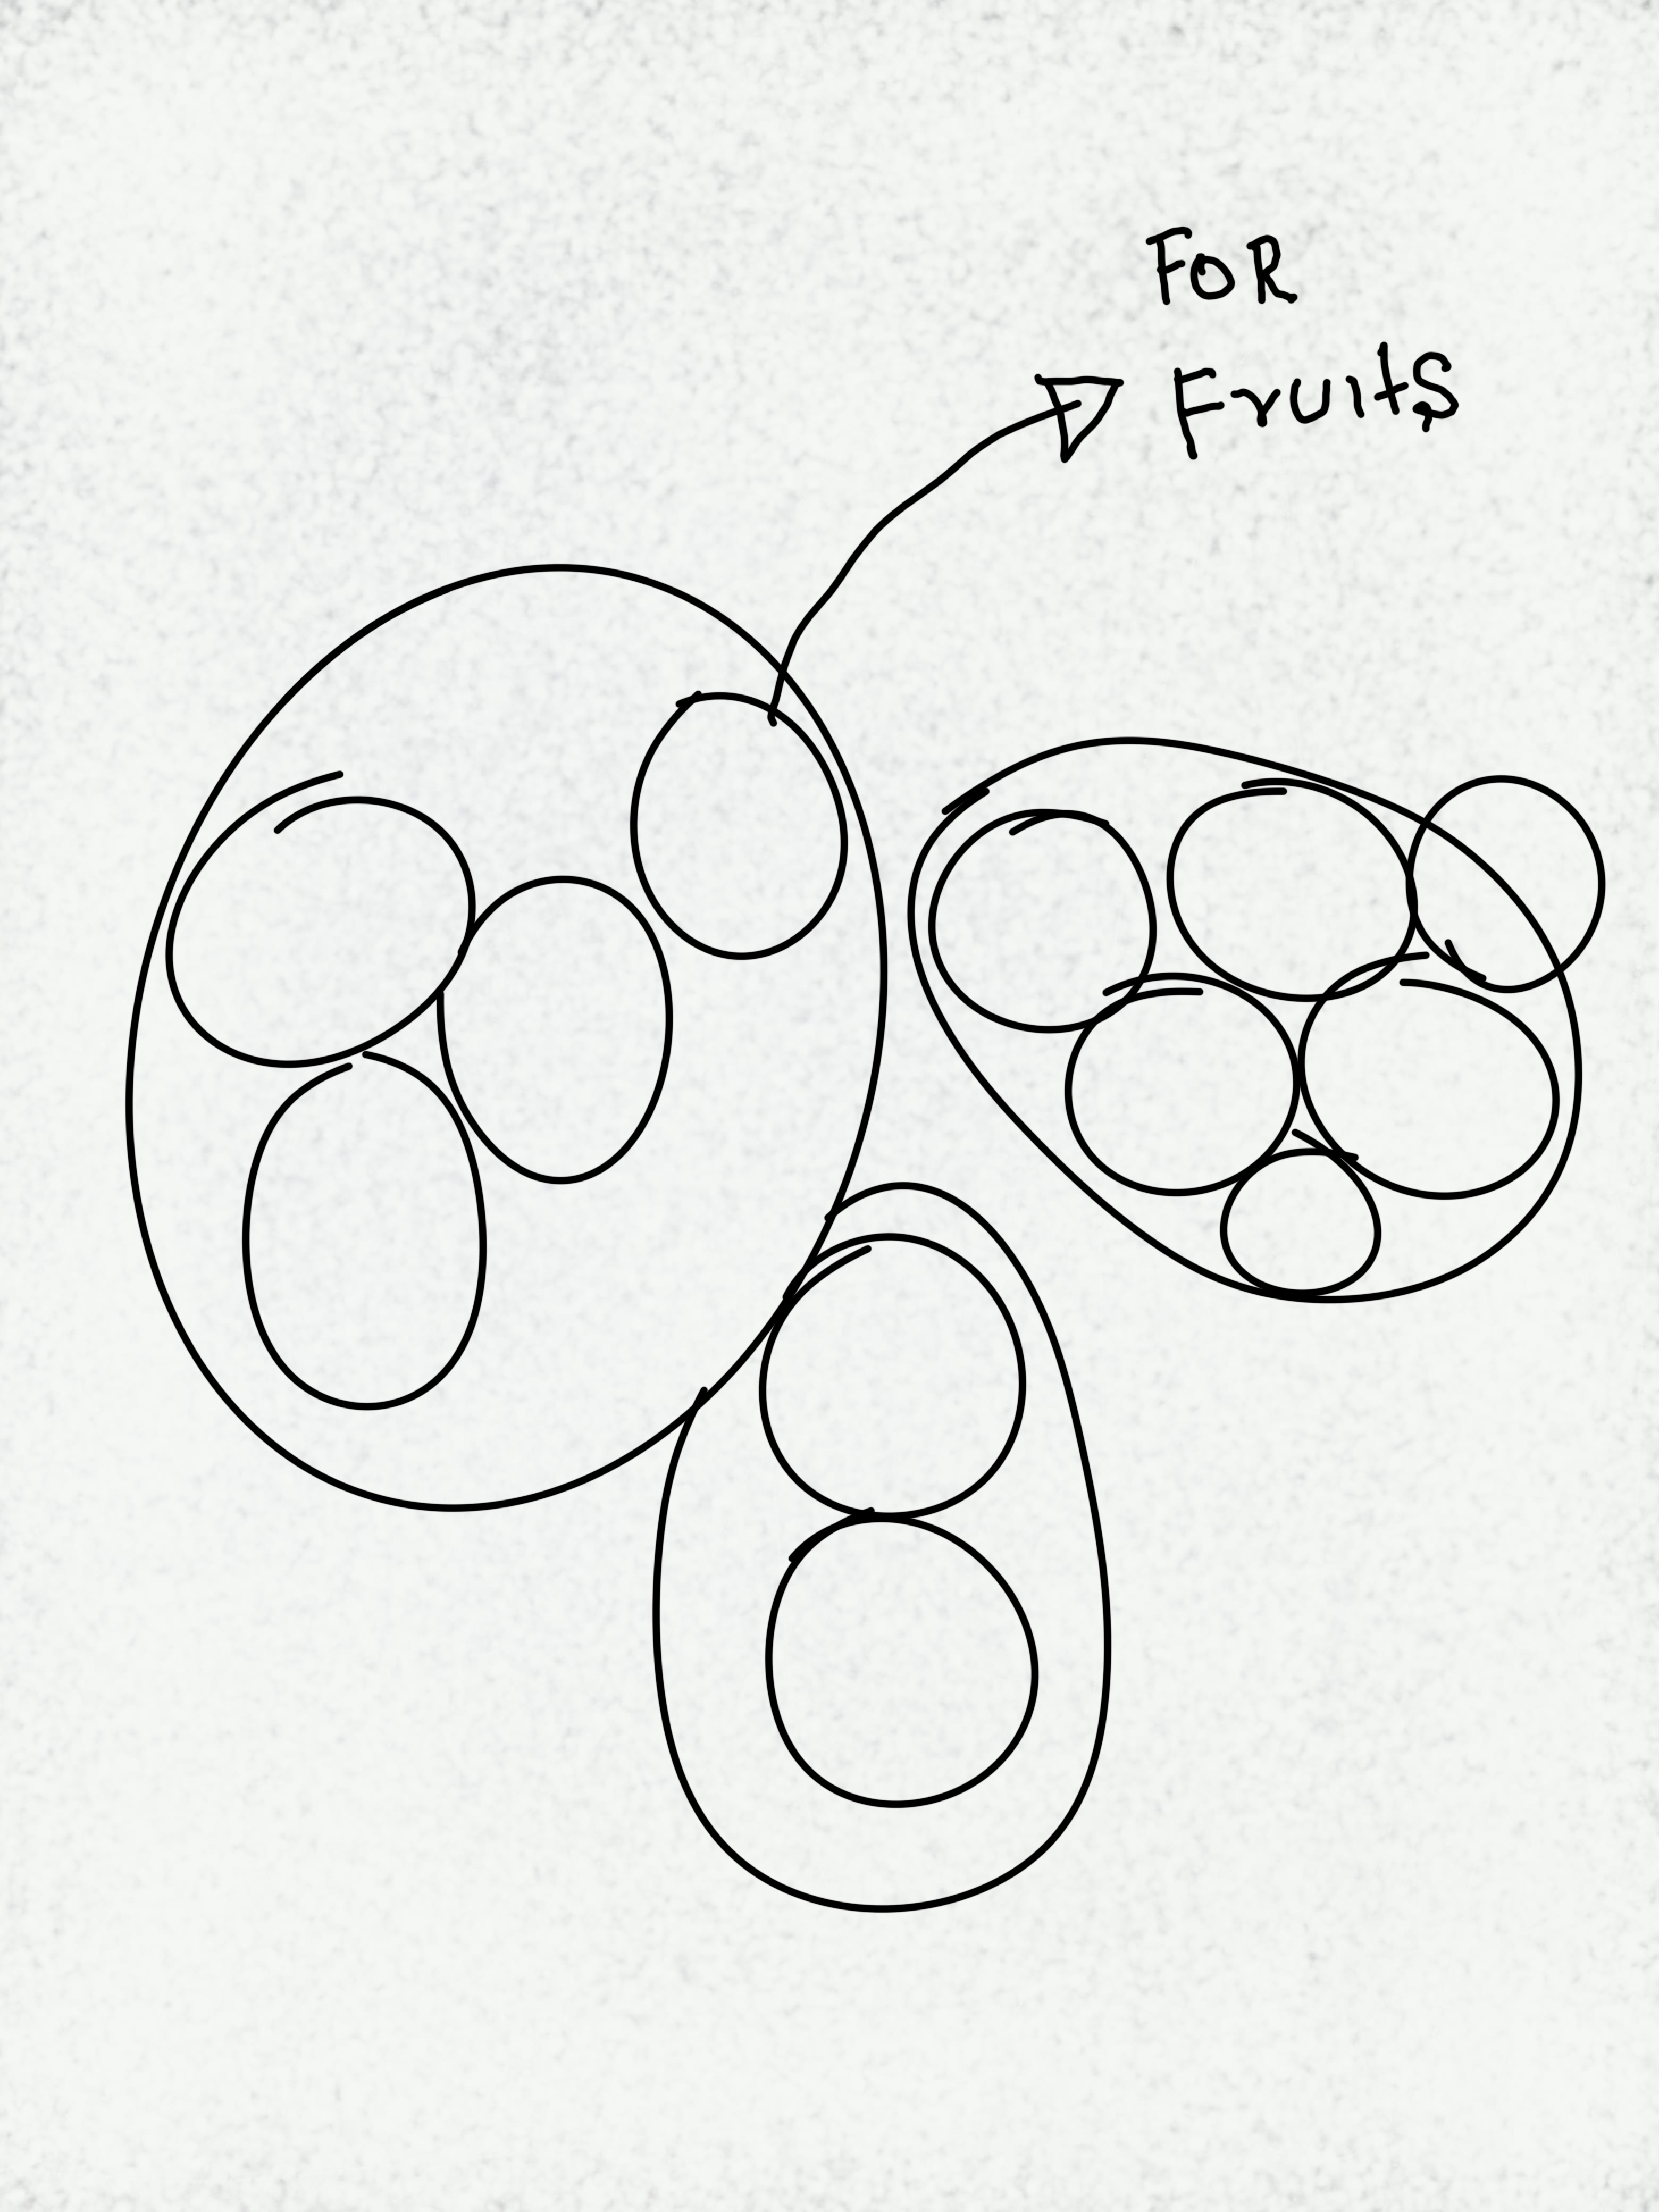 FOR
Fruits